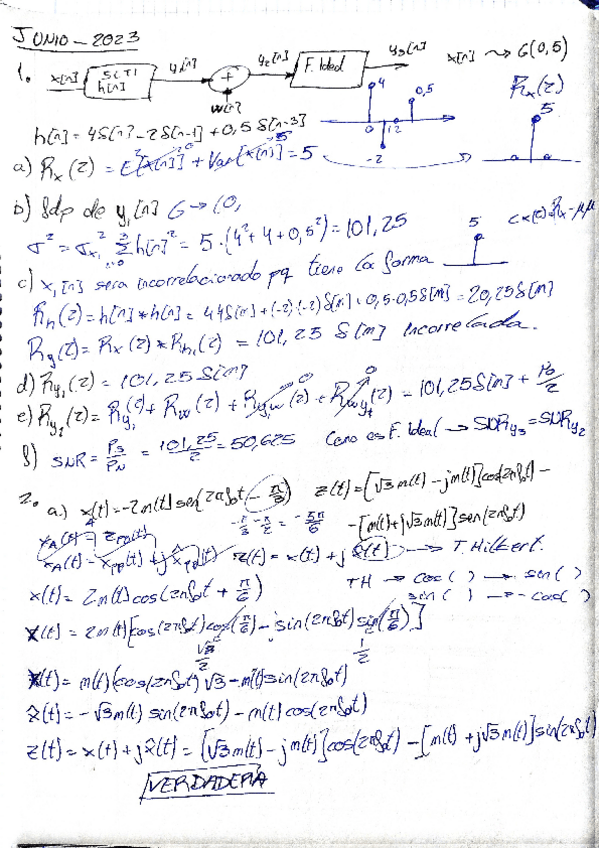 JUNIO-2023
1. x[n] SLTI h[n] y₁[n] + w[n] y₂[n] F. Ideal y₃[n] x[n] ~> G(0,5)
h[n] = 4δ[n] - 2δ[n-1] + 0,5δ[n-3]
4 0,5 0 12 -2
Rx(z)
5
a) Rx(z) = E²[x[n]] + Var[x[n]] = 5
b) ddp de y₁[n] G → (0,
σ² = σx₁² Σ h[n]² = 5·(4²+4+0,5²) = 101,25
5
c) x₁[n] sera incorrelacionado pq tiene la forma
Rh(z) = h[n] * h[n] = 4·4δ[n] + (-2)·(-2)δ[n] + 0,5·0,5δ[n] = 20,25δ[n]
Ry(z) = Rx(z) * Rh₁(z) = 101,25 δ[n] Incorrelada.
d) Ry₁(z) = 101,25δ[n]
e) Ry₂(z) = Ry₁(z) + Rw(z) + Ry₁w(z) + Rwy₁(z) = 101,25δ[n] + N0/2
f) SNR = Ps/PN = 101,25/2 = 50,625 Como es F. Ideal → SNRy₃ = SNRy₂
2. a.) x(t) = -2m(t) sen(2πf₀t - π/3) z(t) = [√3m(t) - jm(t)]cos(2πf₀t) -
-π/3 - π/2 = -5π/6 -[m(t)+j√3m(t)]sen(2πf₀t)
z(t) = x(t) + j x̂(t) → T. Hilbert.
TH → cos( ) → sen( )
sin( ) → -cos( )
x(t) = 2m(t)cos(2πf₀t + π/6)
x(t) = 2m(t)[cos(2πf₀t)cos(π/6) - sin(2πf₀t)sin(π/6)]
√3/2 1/2
x(t) = m(t)cos(2πf₀t)√3 - m(t)sin(2πf₀t)
x̂(t) = -√3m(t) sin(2πf₀t) - m(t)cos(2πf₀t)
z(t) = x(t) + jx̂(t) = [√3m(t) - jm(t)]cos(2πf₀t) - [m(t) + j√3m(t)]sin(2πf₀t)
VERDADERA